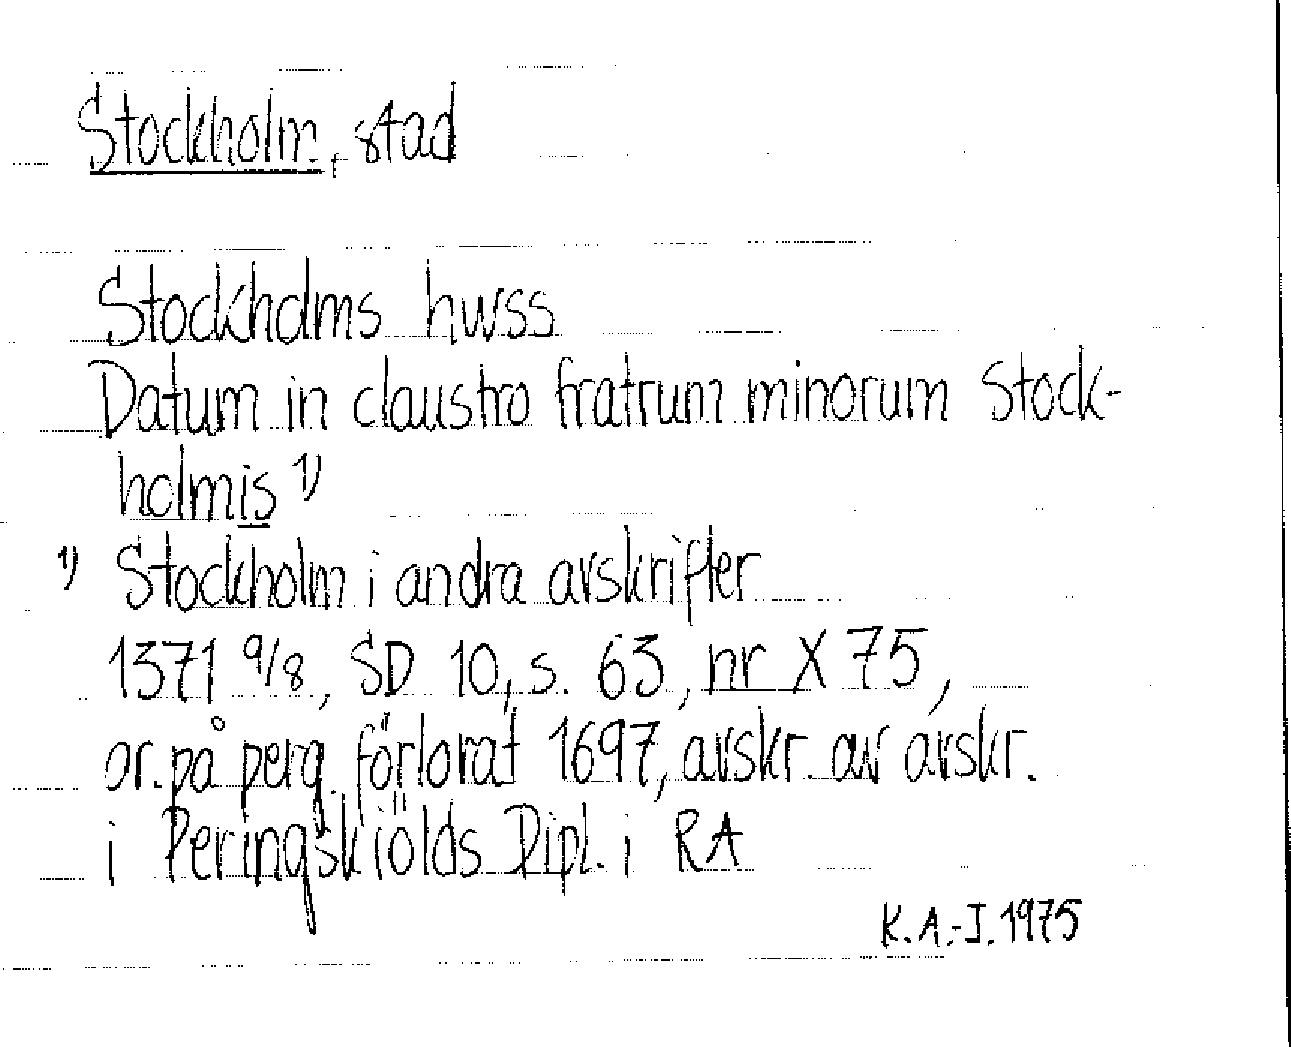 Stockholm, stad
Stockholms hwss
Datum in claustro fratrum minorum Stock-
holmis 1)
1) Stockholm i andra avskrifter
1371 9/8, SD 10, s. 63, nr X 75,
or. på perg. förlorat 1697, avskr. av avskr.
i Peringskiölds Dipl. i RA
K.A.-J. 1975